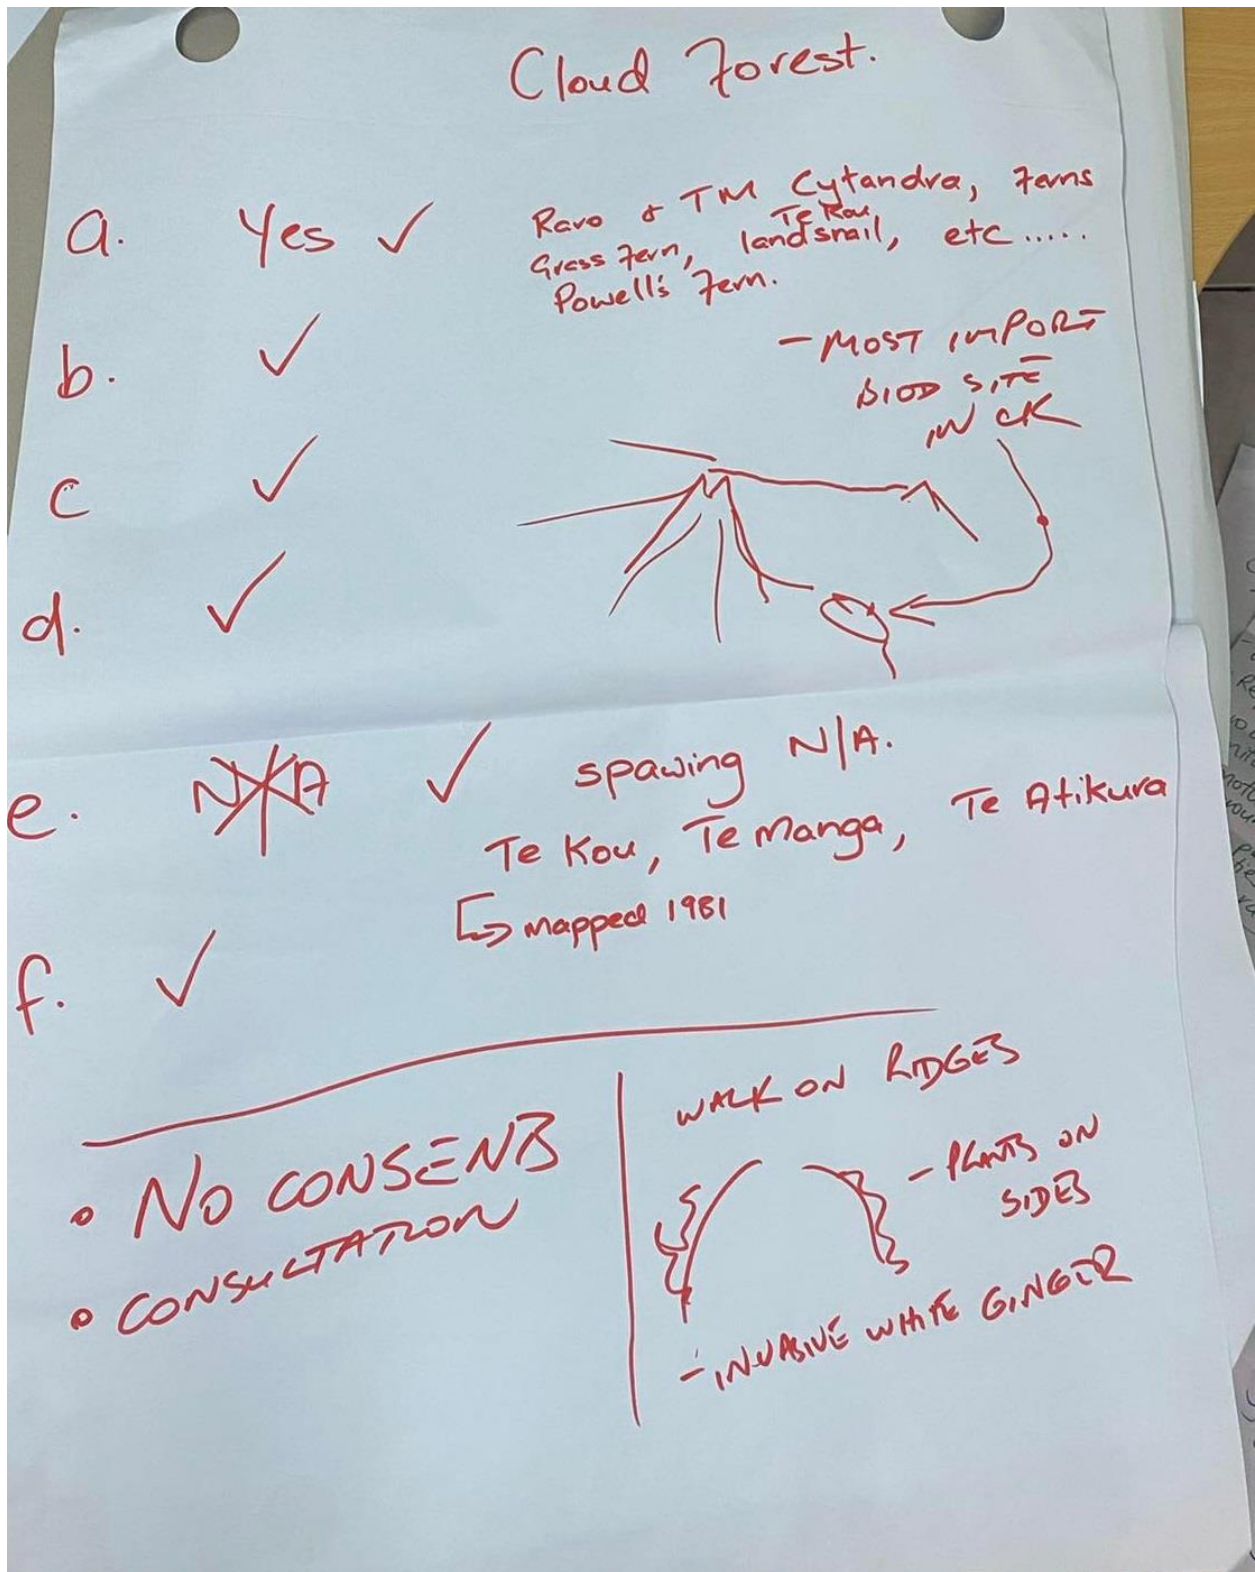 Cloud Forest.
a. Yes ✓
Raro & TM Cytandra, Ferns
Grass Fern, Te Kou landsnail, etc.....
Powell's Fern.
b. ✓
- MOST IMPORT
BIOD SITE
IN CK
c ✓
d. ✓
e. N/A ✓ spawing N/A.
Te Kou, Te Manga, Te Atikura
↳ mapped 1981
f. ✓
• NO CONSENTS
• CONSULTATION
WALK ON RIDGES
- PLANTS ON
SIDES
- INVASIVE WHITE GINGER